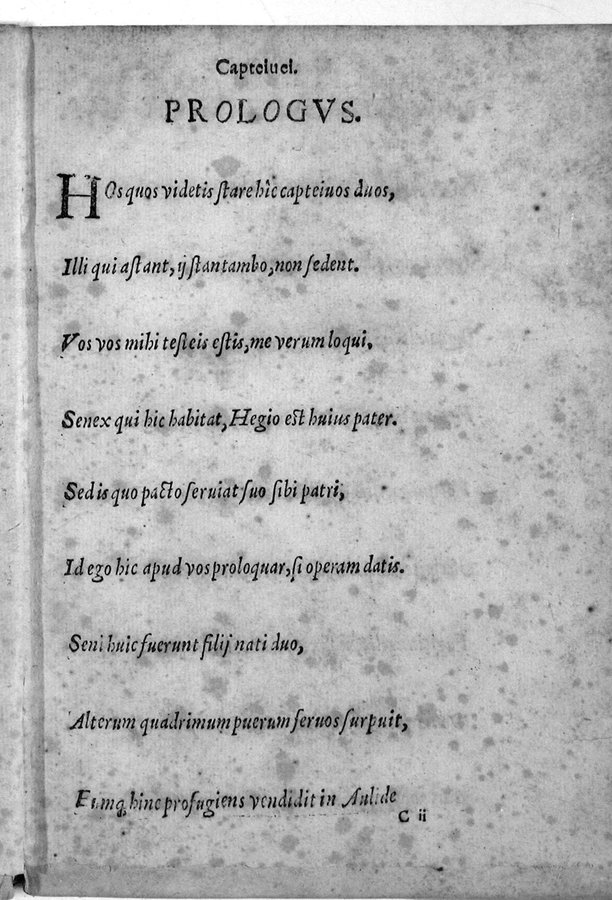 Capteiuei.
PROLOGVS.
HOs quos videtis stare hìc capteiuos duos,
Illi qui astant, ij stant ambo, non sedent.
Vos vos mihi testeis estis, me verum loqui.
Senex qui hic habitat, Hegio est huius pater.
Sed is quo pacto seruiat suo sibi patri,
Id ego hic apud vos proloquar, si operam datis.
Seni huic fuerunt filij nati duo,
Alterum quadrimum puerum seruos surpuit,
Eumq; hinc profugiens vendidit in Aulide
C ii